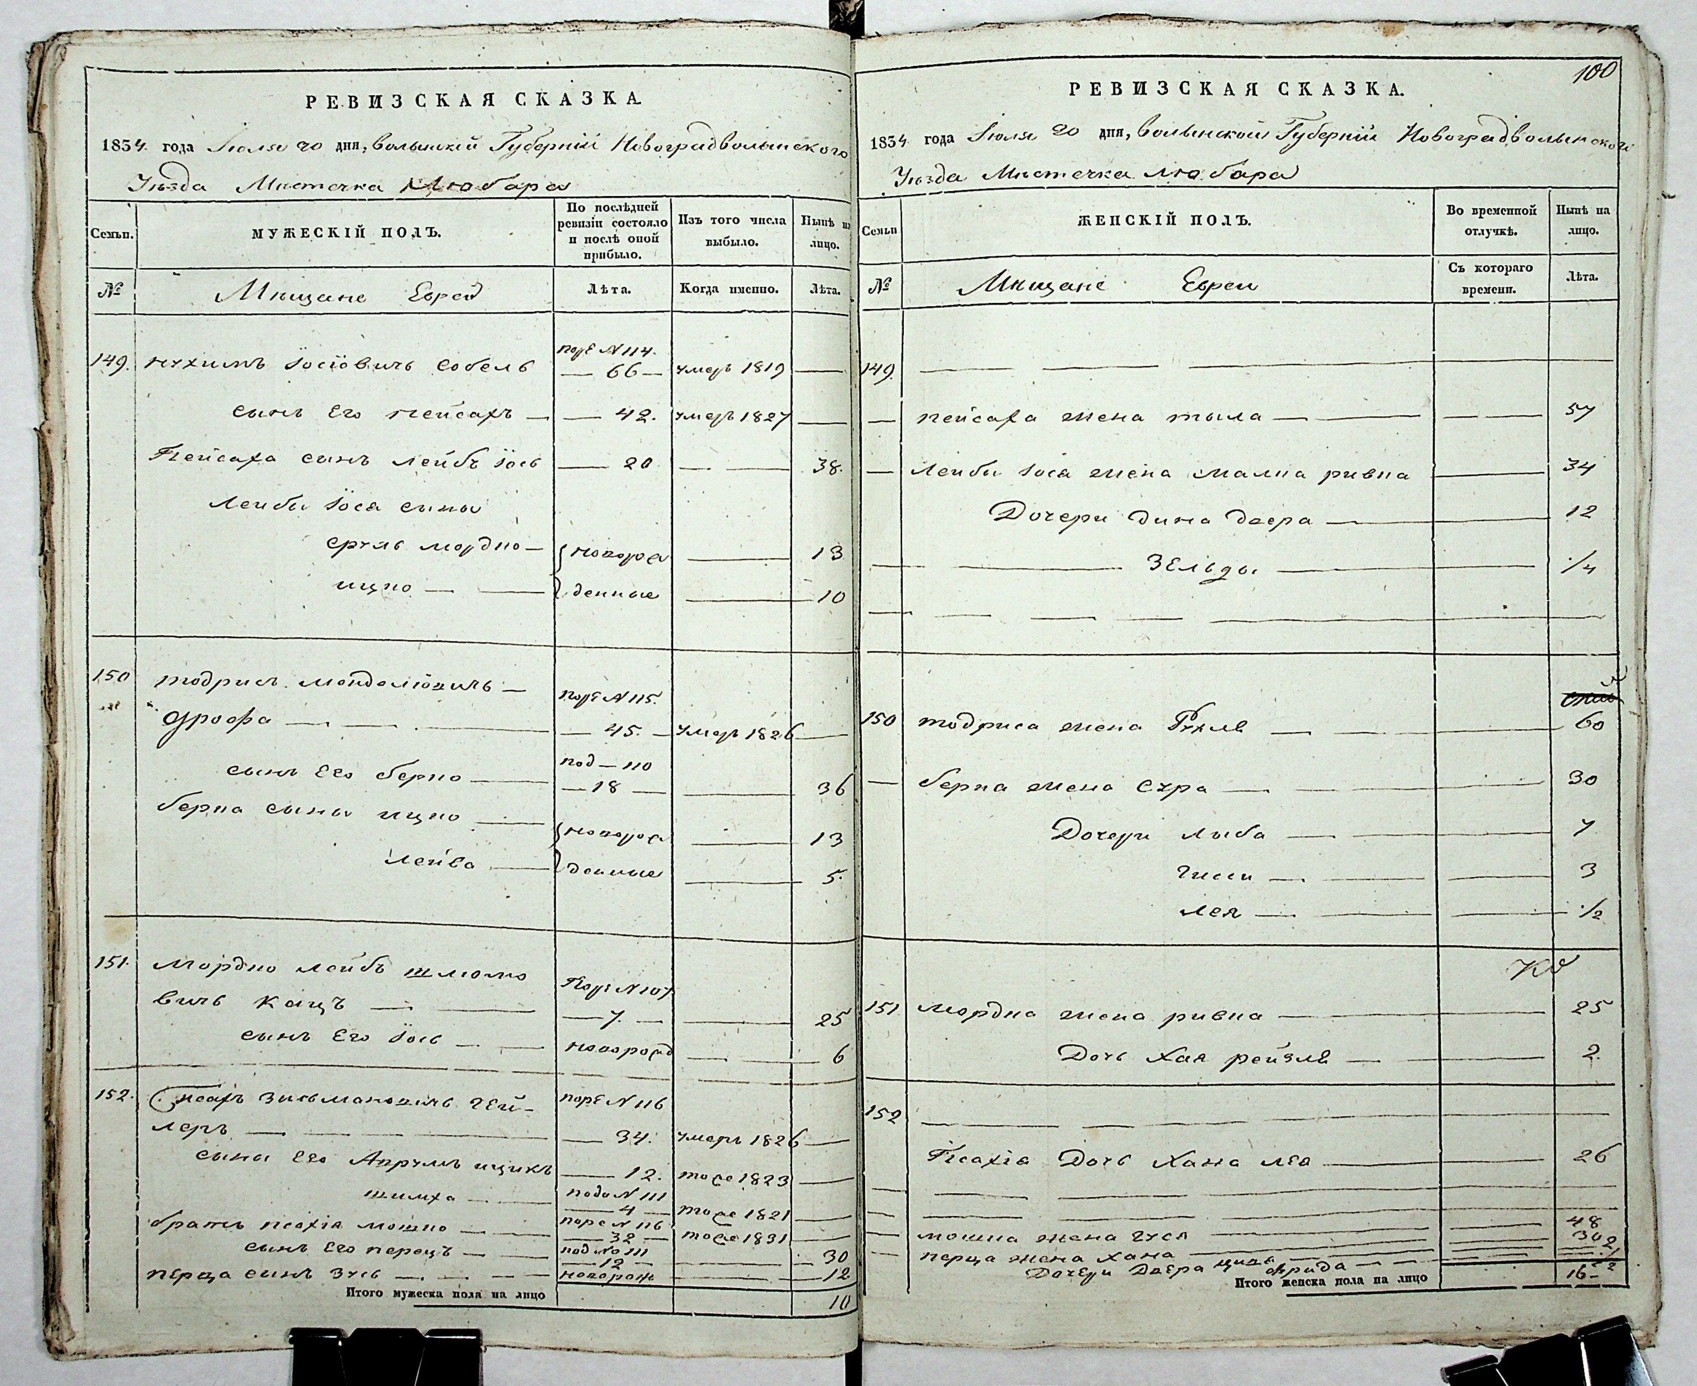 РЕВИЗСКАЯ СКАЗКА.
1834 года Іюля 20 дня, Волынской Губерніи Новоградволынского
Уѣзда Мистечка Любара
Семьи. МУЖЕСКІЙ ПОЛЪ. По послѣдней ревизіи состояло и послѣ оной прибыло. Изъ того числа выбыло. Нынѣ на лицо.
№ Мищане Евреи Лѣта. Когда именно. Лѣта.
149. Нухимъ Іосіовичъ Собель поре N 114. 66 умеръ 1819
сынъ Его Пейсахъ 42. умеръ 1827
Пейсаха сынъ Лейбъ Іось 20 38.
Лейбы Іося сыны
Сруль Мордко новорож 13
ицко денные 10
150 Тодрисъ
поре N 115.
45. умеръ 1826
сынъ Его Берко под 110 18 36
Берка сыны ицко новорож 13
Лейба денные 5.
151. Мордко Лейбъ Шлiомо
вичъ Кацъ Поре N 107 7. 25
сынъ Его Іось новорожд 6
152. Псахъ Зисьмановичъ Гей- поре N 116
леръ 34. умеръ 1826
сыны Его Аврумъ ицикъ 12. тоже 1823
шимха подо N 111 4 тоже 1821
братъ псахія мошко поре N 116 32 тоже 1831
сынъ Его перецъ под No 111 12 30
перца сынъ Зусь новорож 12
Итого мужеска пола на лицо 10
100
РЕВИЗСКАЯ СКАЗКА.
1834 года Іюля 20 дня, Волынской Губерніи Новоградволынского
Уѣзда Мистечка Любара
Семьи ЖЕНСКІЙ ПОЛЪ. Во временной отлучкѣ. Нынѣ на лицо.
№ Мищане Евреи Съ котораго времени. Лѣта.
149.
пейсаха жена тыла 57
Лейбы Іося жена Малка ривка 34
Дочери дина двера 12
Зельды 1/4
150 Тодриса жена Рухля 60
Берка жена Сура 30
Дочери Лыба 7
Гисси 3
Лея 1/2
151 Мордка жена ривка 25
Дочь Хая рейзля 2.
152
Псахія Дочь Хана лея 26
мошка жена Гуся 48
перца жена Хана 30
Дочери Двера
Итого женска пола на лицо 16